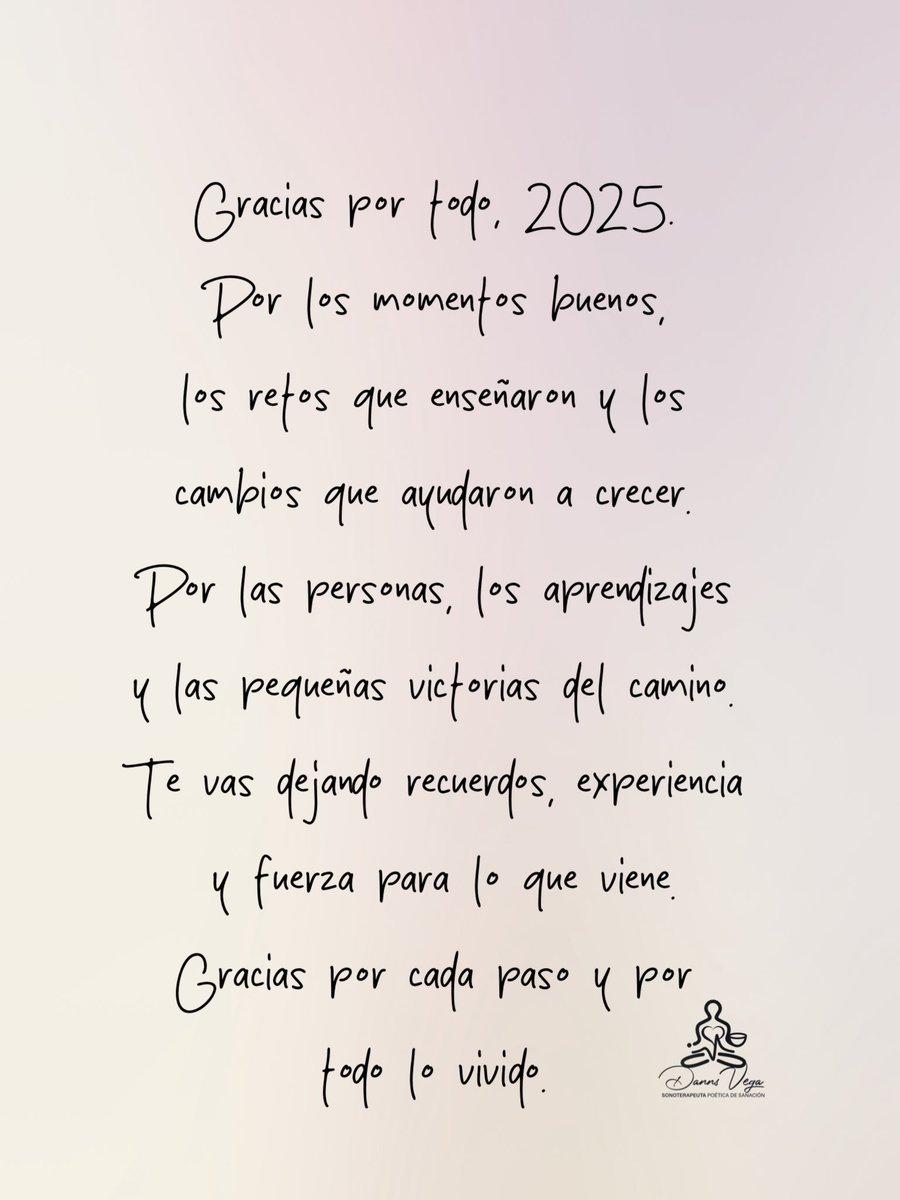 Gracias por todo, 2025.
Por los momentos buenos,
los retos que enseñaron y los
cambios que ayudaron a crecer.
Por las personas, los aprendizajes
y las pequeñas victorias del camino.
Te vas dejando recuerdos, experiencia
y fuerza para lo que viene.
Gracias por cada paso y por
todo lo vivido.
Danns Vega
SONOTERAPEUTA POÉTICA DE SANACIÓN